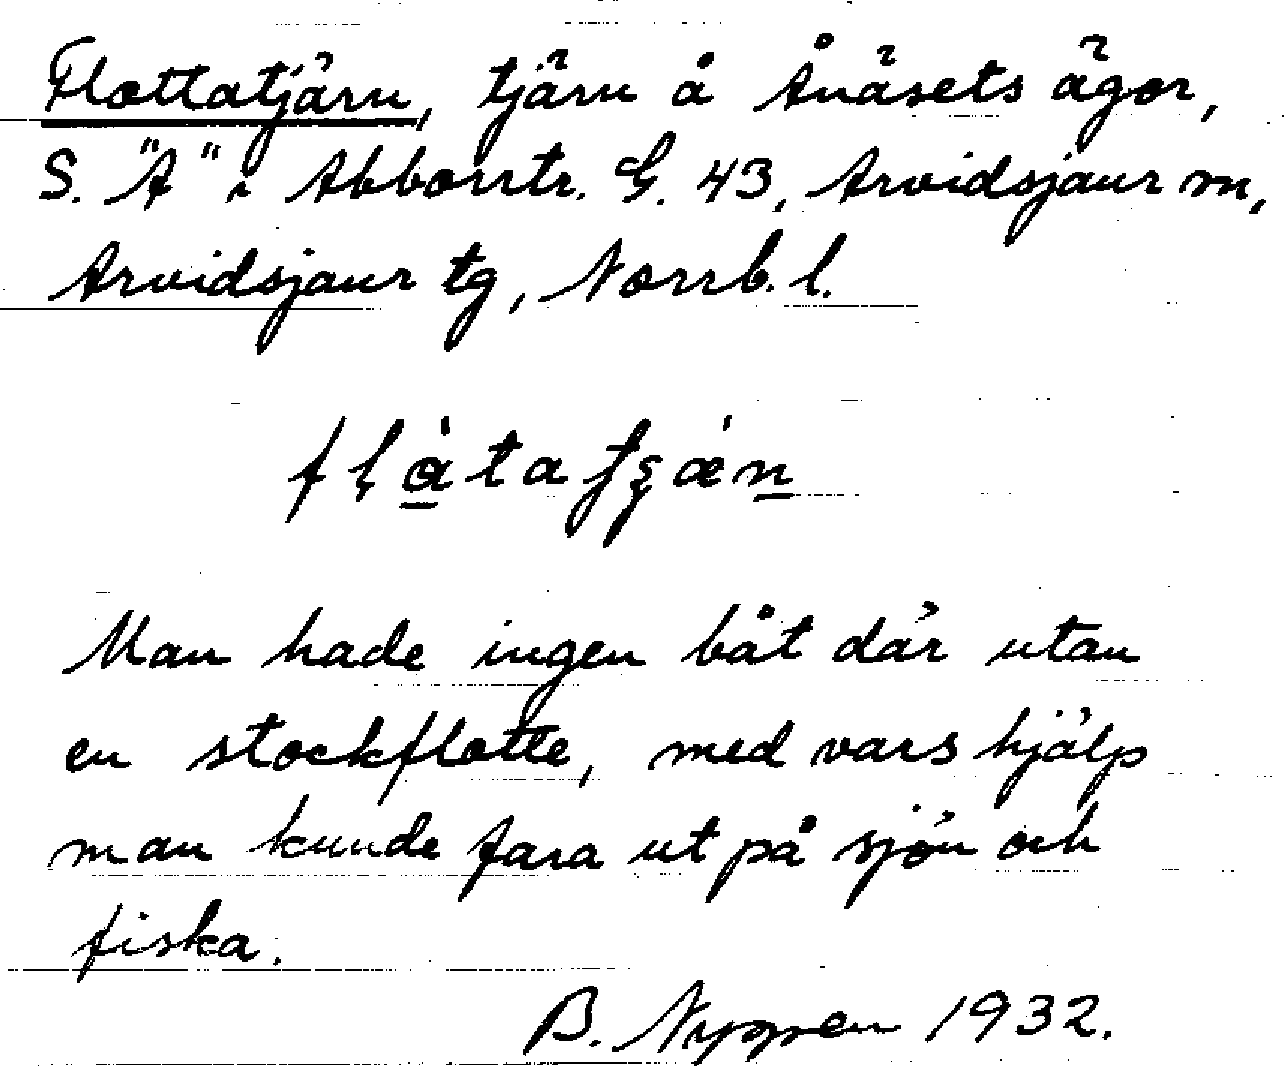 Flottatjärn, tjärn å Ånäsets ägor,
S. "A" i Abborrtr. G. 43, Arvidsjaur sn,
Arvidsjaur tg, Norrb. l.
Man hade ingen båt där utan
en stockflotte, med vars hjälp
man kunde fara ut på sjön och
fiska.
B. Nyppen 1932.